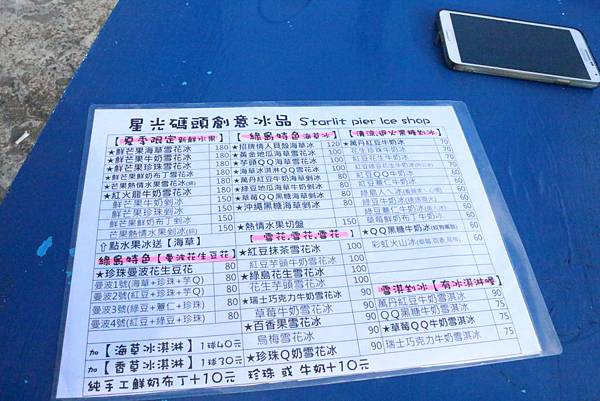 星光碼頭創意冰品 Starlit pier Ice shop
【夏季限定 新鮮水果】
★鮮芒果海草雪花冰 180
★鮮芒果牛奶雪花冰 180
★鮮芒果珍珠雪花冰 180
★鮮芒果鮮奶布丁雪花冰 180
★芒果熱情水果雪花冰 180
★紅火龍牛奶雪花冰 180
鮮芒果牛奶剉冰 150
鮮芒果珍珠剉冰 150
鮮芒果鮮奶布丁剉冰 150
芒果熱情水果剉冰 150
⇧點水果冰送【海草】
綠島特色【曼波花生豆花】
★珍珠曼波花生豆花 80
曼波1號(海草+珍珠+芋Q) 80
曼波2號(紅豆+珍珠+芋Q) 80
曼波3號(綠豆+薏仁+珍珠) 80
曼波4號(紅豆+綠豆+珍珠) 80
加【海草冰淇淋】1球40元
加【香草冰淇淋】1球30元
純手工鮮奶布丁+10元 珍珠 或 牛奶+10元
【綠島特色 海草冰】
★招牌情人貝殼海草冰 120
★黃金地瓜海草雪花冰 100
★芋頭QQ海草雪花冰 100
★海草冰淇淋QQ雪花冰 100
★萬丹紅豆牛奶海草剉冰 90
★綠豆地瓜牛奶海草剉冰 90
★草莓QQ海草剉冰 90
★沖繩黑糖海草剉冰 90
★熱情水果切盤 150
【雪花.雪花.雪花】
★紅豆抹茶雪花冰 100
紅豆芋頭牛奶雪花冰 100
★綠島花生雪花冰 100
花生芋頭雪花冰 100
★瑞士巧克力牛奶雪花冰 90
草莓牛奶雪花冰 90
★百香果雪花冰 90
烏梅雪花冰 90
★珍珠Q奶雪花冰 90
【清涼退火黑糖剉冰】
★萬丹紅豆牛奶冰 70
花生牛奶冰 70
紅豆花生牛奶冰 70
紅豆QQ牛奶冰 60
紅豆薏仁牛奶冰 60
綠豆薏仁牛奶冰 60
草莓鮮奶布丁牛奶冰 60
★QQ黑糖牛奶冰 60
彩虹火山冰 60
雪淇剉冰【有冰淇淋喔】
萬丹紅豆牛奶雪淇冰 90
QQ黑糖牛奶雪淇冰 75
★草莓QQ牛奶雪淇冰 75
瑞士巧克力牛奶雪淇冰 75